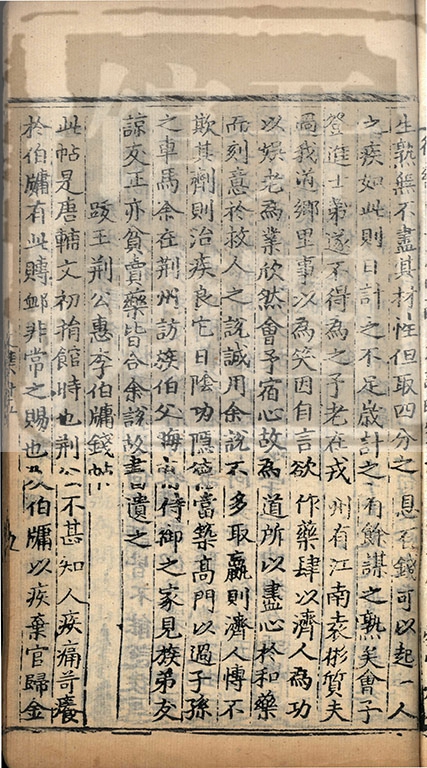 生熟無不盡其材性但取四分之一息百錢可以起一人
之疾如此則日計之不足歲計之有餘謀之熟矣會予
登進士第遂不得為之予老在戎州有江南袁彬質夫
過我道鄉里事以為笑因自言欲作藥肆以濟人為功
以娛老為業欣然會予宿心故為道所以盡心於和藥
而刻意於救人之說誠用余說不多取贏則濟人博不
欺其劑則治疾良它日陰功隱德當築高門以過子孫
之車馬余在荆州訪族伯父晦甫侍御之家見族弟友
諒友正亦貧賣藥皆合余說故書遺之
跋王荆公惠李伯牖錢帖
此帖是唐輔文初捐館時也荆公不甚知人疾痛苛癢
於伯牖有此賻卹非常之賜也及伯牖以疾棄官歸金